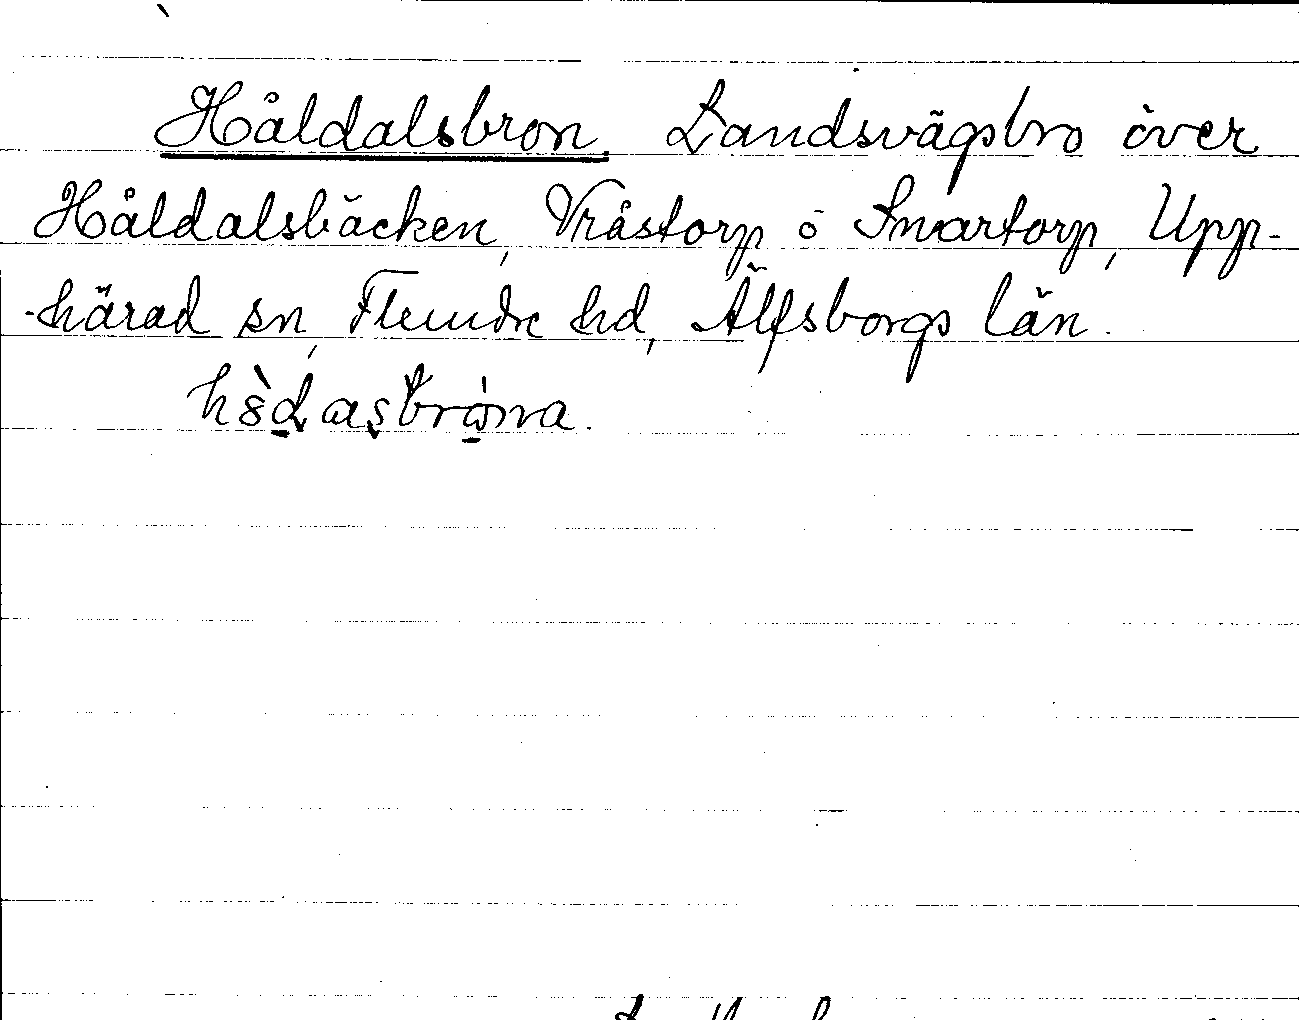 Håldalsbron. Landsvägsbro över
Håldalsbäcken, Vråstorp o Snartorp, Upp-
härad sn, Flundre hd, Älfsborgs län.